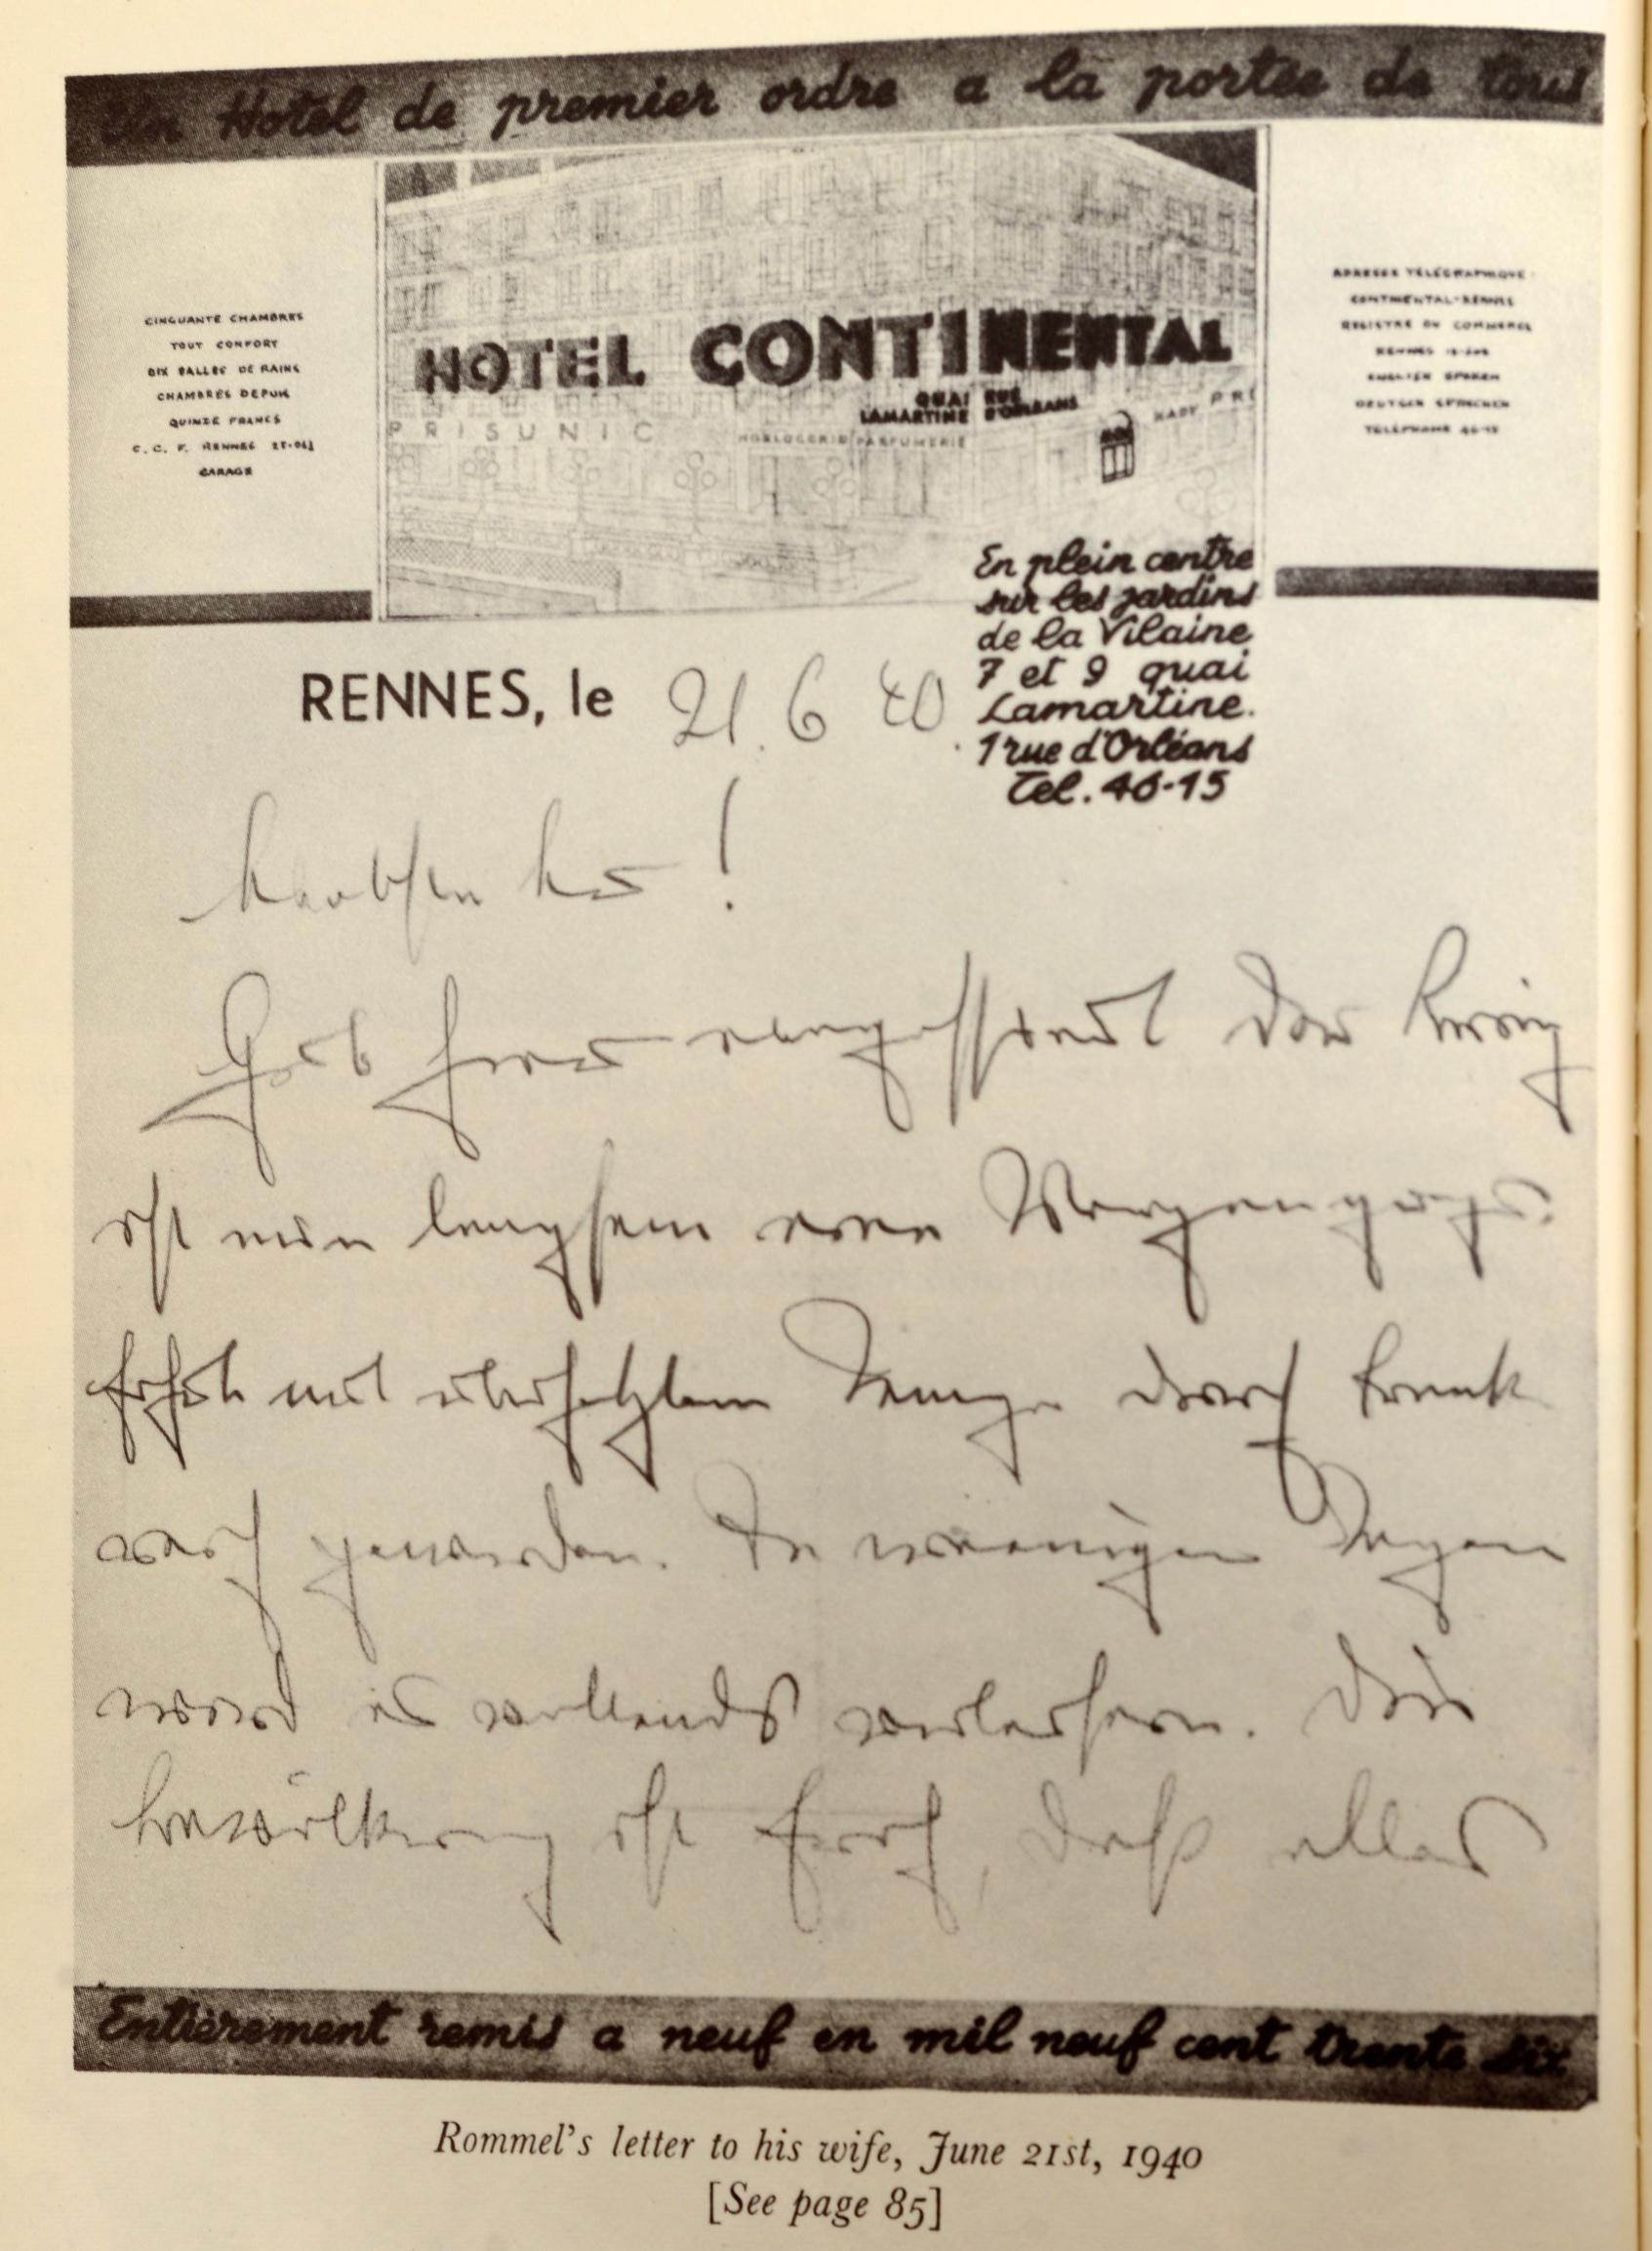 Un Hotel de premier ordre a la portée de tous
CINQUANTE CHAMBRES
TOUT CONFORT
DIX SALLES DE BAINS
CHAMBRES DEPUIS
QUINZE FRANCS
C. C. P. RENNES
GARAGE
HOTEL CONTINENTAL
QUAI LAMARTINE RUE D'ORLEANS
PRISUNIC
HORLOGERIE PARFUMERIE
PRI
ADRESSE TÉLÉGRAPHIQUE
CONTINENTAL-RENNES
REGISTRE DU COMMERCE
RENNES
ENGLISH SPOKEN
DEUTSCH SPRECHEN
TELEPHONE 46-15
En plein centre
sur les jardins
de la Vilaine
7 et 9 quai
Lamartine.
1 rue d'Orléans
Tel. 46-15
RENNES, le 21. 6 40.
Liebste Lu!
Gut hier Der Krieg
ist nun langsam eine
mit übersetztem Tempo durch Frank
reich geworden. In wenigen Tagen
wird es vollends Die
Bevölkerung ist froh, daß alles
Entièrement remis a neuf en mil neuf cent trente six
Rommel's letter to his wife, June 21st, 1940
[See page 85]